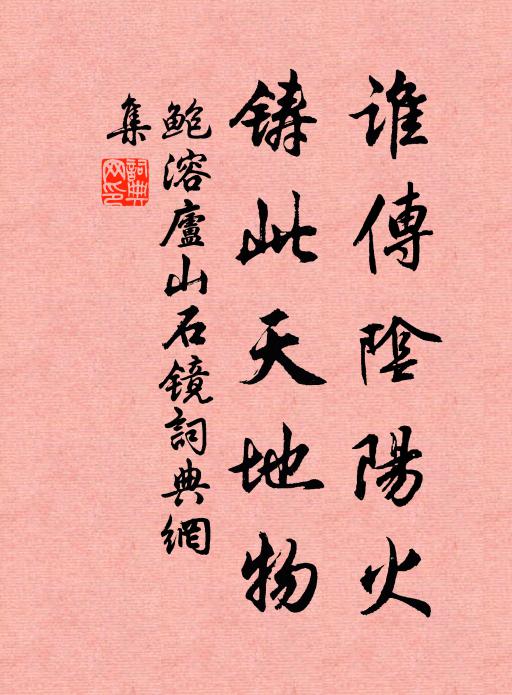 誰傳陰陽火
鑄此天地物
鲍溶廬山石镜詞典網
集
詞典
网印